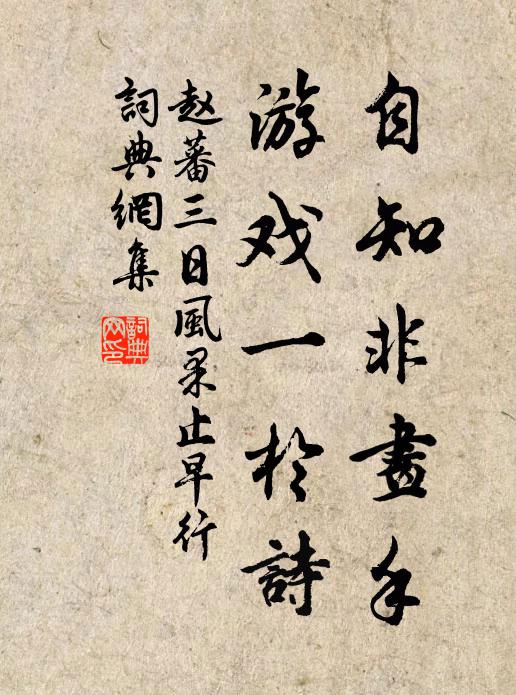 自知非畫手
游戏一於詩
赵蕃三日風果止早行
詞典網集
詞典網印